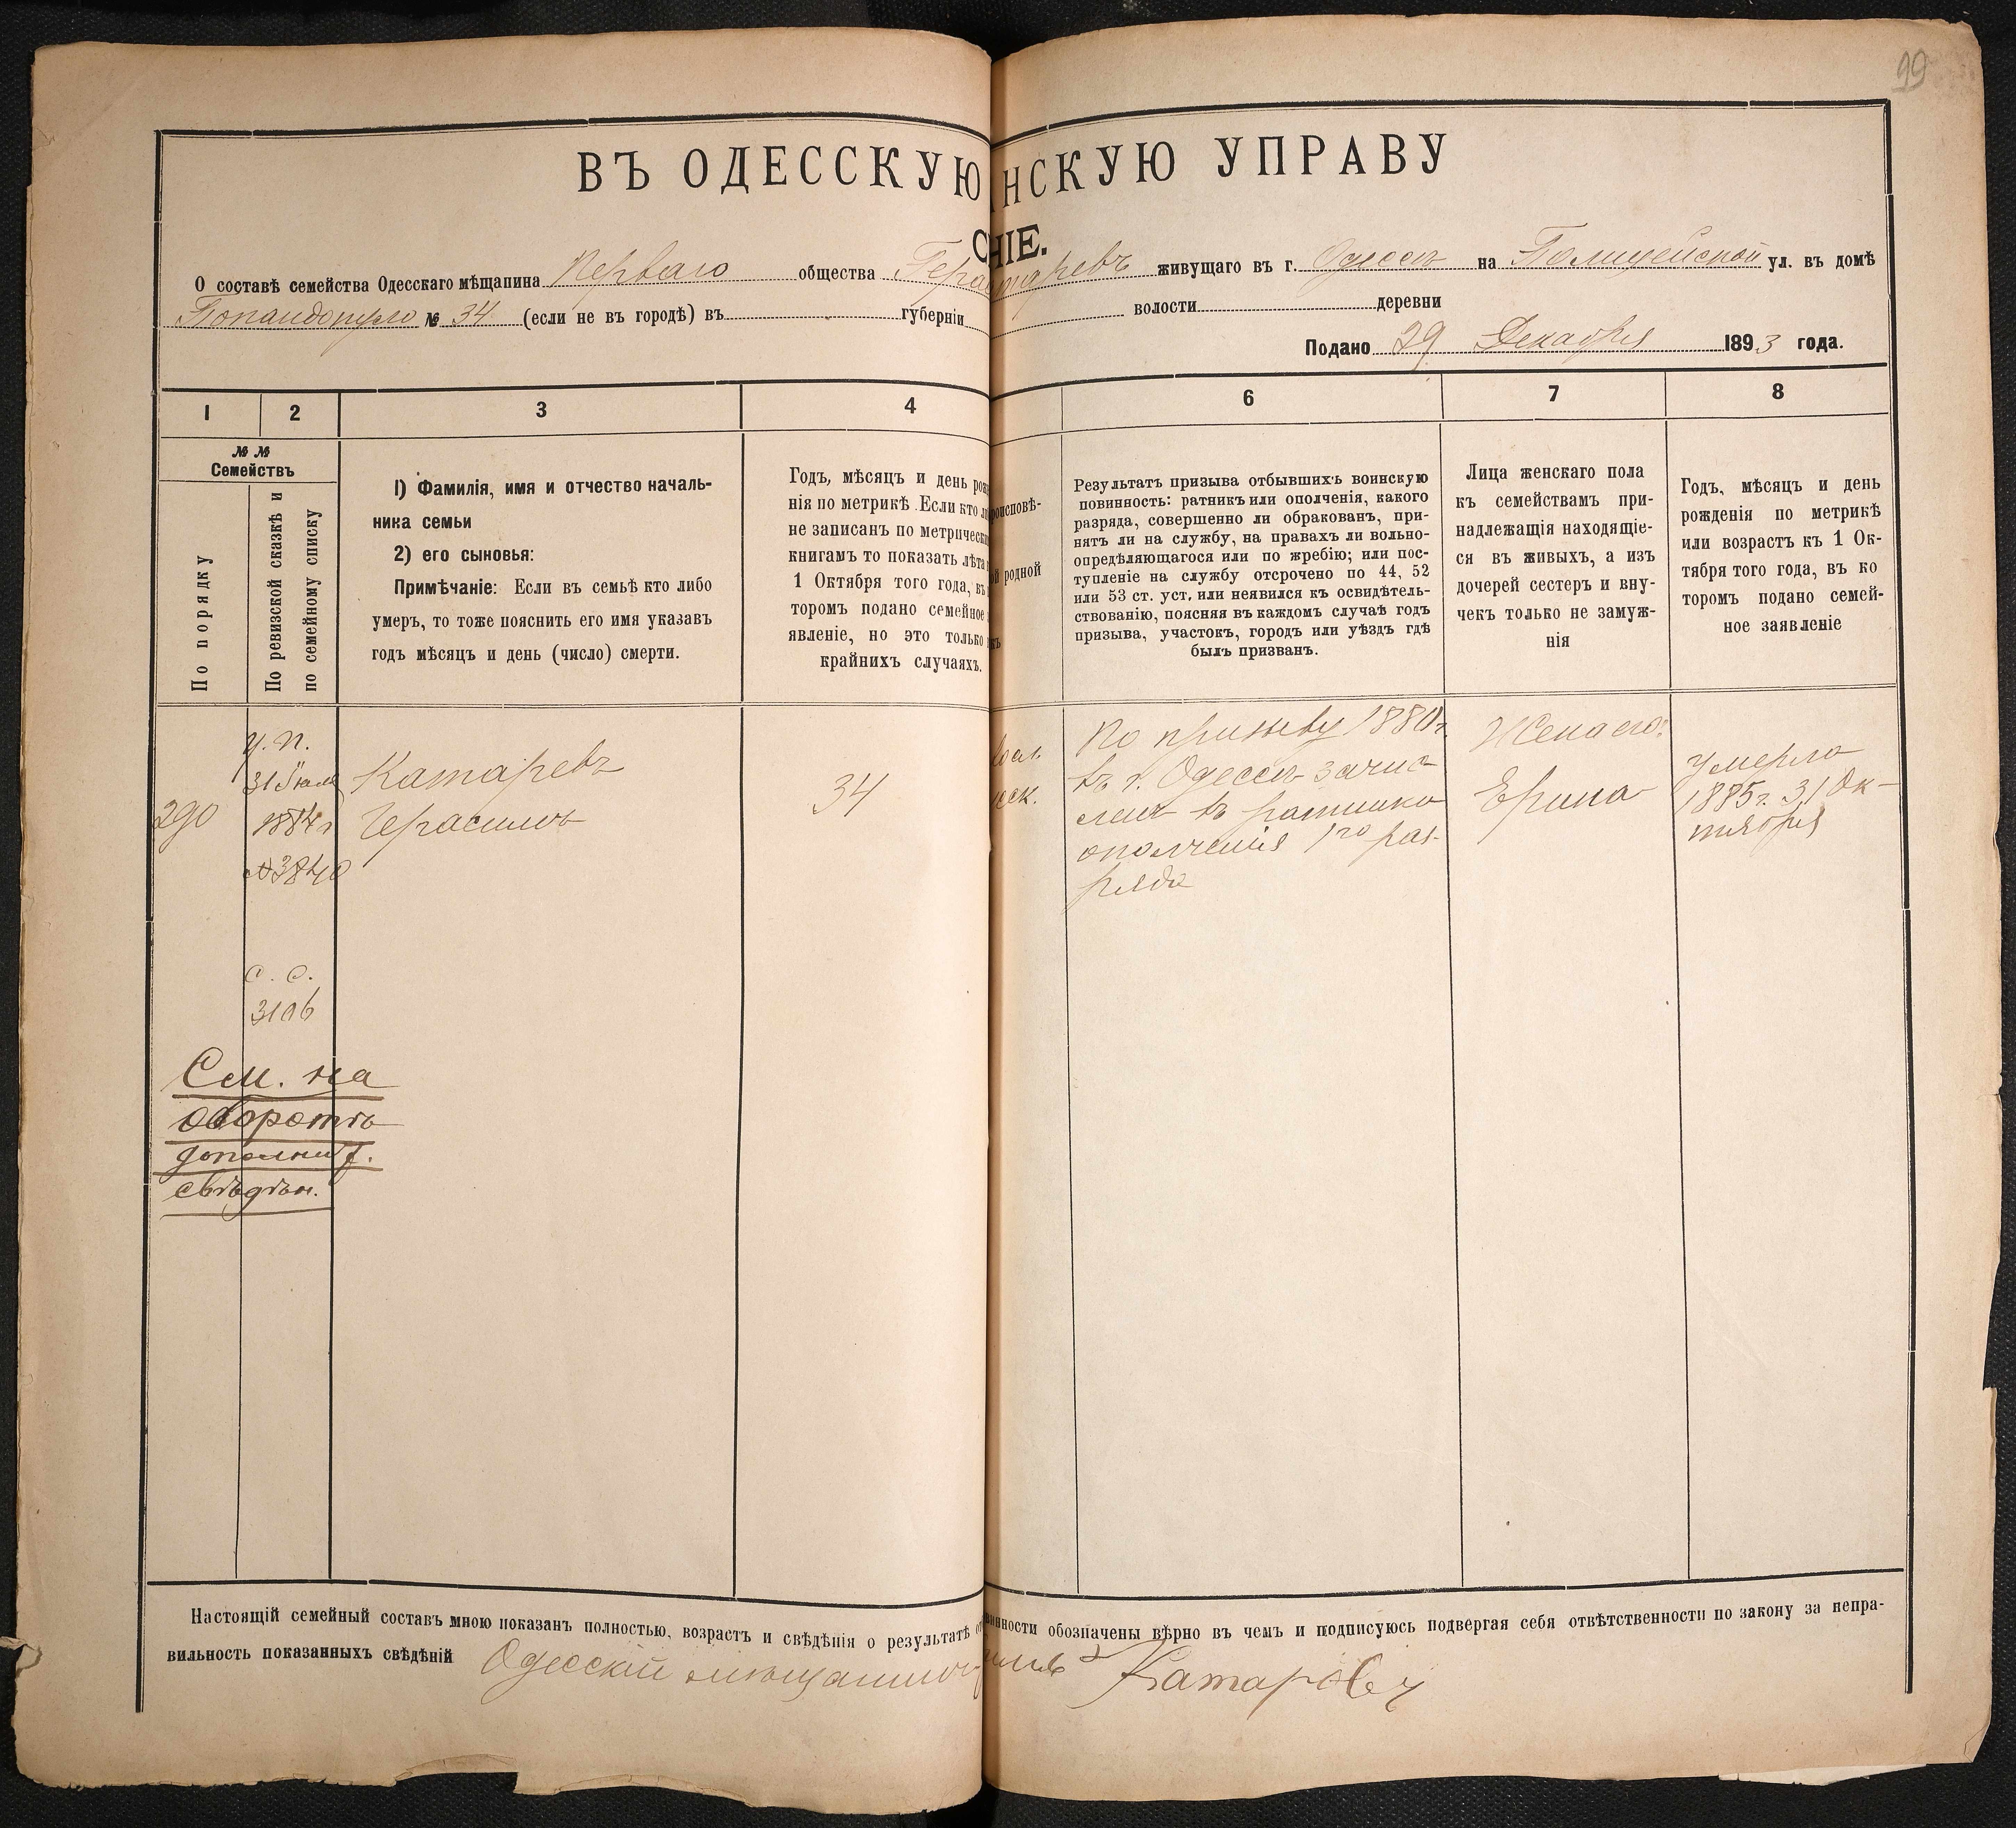 99
ВЪ ОДЕССКУЮ НСКУЮ УПРАВУ
НІЕ.
О составѣ семейства Одесскаго мѣщанина Перваго общества Гера таревъ живущаго въ г. Одессѣ на Полицейской ул. въ домѣ
Попандопуло № 34 (если не въ городѣ) въ губерніи волости деревни
Подано 29 Декабря 1893 года.
1 2 3 4 6 7 8
№ №
Семействъ
По порядку
По ревизской сказкѣ и
по семейному списку
1) Фамилія, имя и отчество началь-
ника семьи
2) его сыновья:
Примѣчаніе: Если въ семьѣ кто либо
умеръ, то тоже пояснить его имя указавъ
годъ мѣсяцъ и день (число) смерти.
Годъ, мѣсяцъ и день рож
нія по метрикѣ. Если кто л
не записанъ по метрическ
книгамъ то показать лѣта
1 Октября того года, въ
торомъ подано семейное
явленіе, но это только
крайнихъ случаяхъ.
роисповѣ-
й родной
Результатъ призыва отбывшихъ воинскую
повинность: ратникъ или ополченія, какого
разряда, совершенно ли обракованъ, при-
нятъ ли на службу, на правахъ ли вольно-
опредѣляющагося или по жребію; или пос-
тупленіе на службу отсрочено по 44, 52
или 53 ст. уст. или неявился къ освидѣтель-
ствованію, поясняя въ каждомъ случаѣ годъ
призыва, участокъ, городъ или уѣздъ гдѣ
былъ призванъ.
Лица женскаго пола
къ семействамъ при-
надлежащія находящіе-
ся въ живыхъ, а изъ
дочерей сестеръ и вну-
чекъ только не замуж-
нія
Годъ, мѣсяцъ и день
рожденія по метрикѣ
или возрастъ къ 1 Ок-
тября того года, въ ко
торомъ подано семей-
ное заявленіе
290
У. П.
31 Іюля
1884 г
№ 3840
С. С.
3106
См. на
оборотѣ
дополнит.
свѣдѣн.
Катаревъ
Герасимъ
34
По призыву 1880 г.
въ г. Одессѣ зачис
ленъ въ ратники
ополченія 1го раз-
ряда
Жена его:
Ерина
умерла
1885 г. 31 Ок-
тября
Настоящій семейный составъ мною показанъ полностью, возрастъ и свѣдѣнія о результатѣ от винности обозначены вѣрно въ чемъ и подписуюсь подвергая себя отвѣтственности по закону за непра-
вильность показанныхъ свѣдѣній Одесскій мѣщанинъ Катаревъ